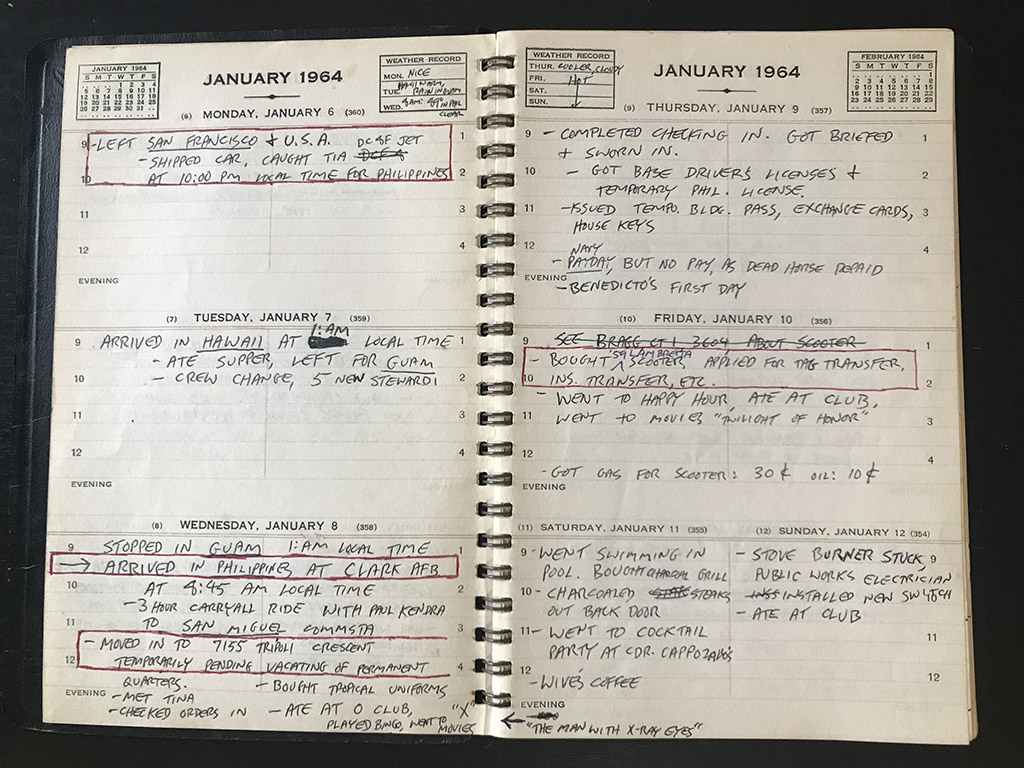 JANUARY 1964
S M T W T F S
1 2 3 4
5 6 7 8 9 10 11
12 13 14 15 16 17 18
19 20 21 22 23 24 25
26 27 28 29 30 31
JANUARY 1964
WEATHER RECORD
MON. NICE
TUE. WARM, RAIN IN GUAM
WED. 8 AM: IN PHIL
CLEAR
(6) MONDAY, JANUARY 6 (360)
9 - LEFT SAN FRANCISCO & U.S.A. DC8F JET 1
- SHIPPED CAR, CAUGHT TIA DCF8
10 AT 10:00 PM LOCAL TIME FOR PHILIPPINES 2
11 3
12 4
EVENING
(7) TUESDAY, JANUARY 7 (359)
1:AM
9 ARRIVED IN HAWAII AT LOCAL TIME 1
- ATE SUPPER, LEFT FOR GUAM
10 - CREW CHANGE, 5 NEW STEWARDI 2
11 3
12 4
EVENING
(8) WEDNESDAY, JANUARY 8 (358)
9 STOPPED IN GUAM 1:AM LOCAL TIME 1
→ ARRIVED IN PHILIPPINES AT CLARK AFB
10 AT 8:45 AM LOCAL TIME 2
- 3 HOUR CARRYALL RIDE WITH PAUL KENDRA
11 TO SAN MIGUEL COMMSTA 3
- MOVED IN TO 7155 TRIPOLI CRESCENT
12 TEMPORARILY PENDING VACATING OF PERMANENT 4
QUARTERS. - BOUGHT TROPICAL UNIFORMS
EVENING - MET TINA
- CHECKED ORDERS IN - ATE AT O CLUB, "X"
PLAYED BINGO, WENT TO MOVIES
WEATHER RECORD
THUR. COOLER, CLOUDY
FRI. HOT
SAT.
SUN.
JANUARY 1964
FEBRUARY 1964
S M T W T F S
1
2 3 4 5 6 7 8
9 10 11 12 13 14 15
16 17 18 19 20 21 22
23 24 25 26 27 28 29
(9) THURSDAY, JANUARY 9 (357)
9 - COMPLETED CHECKING IN. GOT BRIEFED 1
& SWORN IN.
10 - GOT BASE DRIVERS LICENSES & 2
TEMPORARY PHIL. LICENSE.
11 - ISSUED TEMPO. BLDG. PASS, EXCHANGE CARDS, 3
HOUSE KEYS
12 NAVY 4
- PAYDAY, BUT NO PAY, AS DEAD HORSE REPAID
EVENING
- BENEDICTO'S FIRST DAY
(10) FRIDAY, JANUARY 10 (356)
9 SEE BRAGG CT 1 3604 ABOUT SCOOTER 1
- BOUGHT '59 LAMBRETTA SCOOTER, APPLIED FOR TAG TRANSFER,
10 INS. TRANSFER, ETC. 2
- WENT TO HAPPY HOUR, ATE AT CLUB,
11 WENT TO MOVIES "TWILIGHT OF HONOR" 3
12 4
- GOT GAS FOR SCOOTER: 30¢ OIL: 10¢
EVENING
(11) SATURDAY, JANUARY 11 (355)
9 - WENT SWIMMING IN
POOL. BOUGHT CHARCOAL GRILL
10 - CHARCOALED STEAKS
OUT BACK DOOR
11 - WENT TO COCKTAIL
PARTY AT CDR. CAPPOZALO'S
12
- WIVE'S COFFEE
EVENING
(12) SUNDAY, JANUARY 12 (354)
- STOVE BURNER STUCK, 9
PUBLIC WORKS ELECTRICIAN
INSTALLED NEW SWITCH 10
- ATE AT CLUB
11
12
← "THE MAN WITH X-RAY EYES"